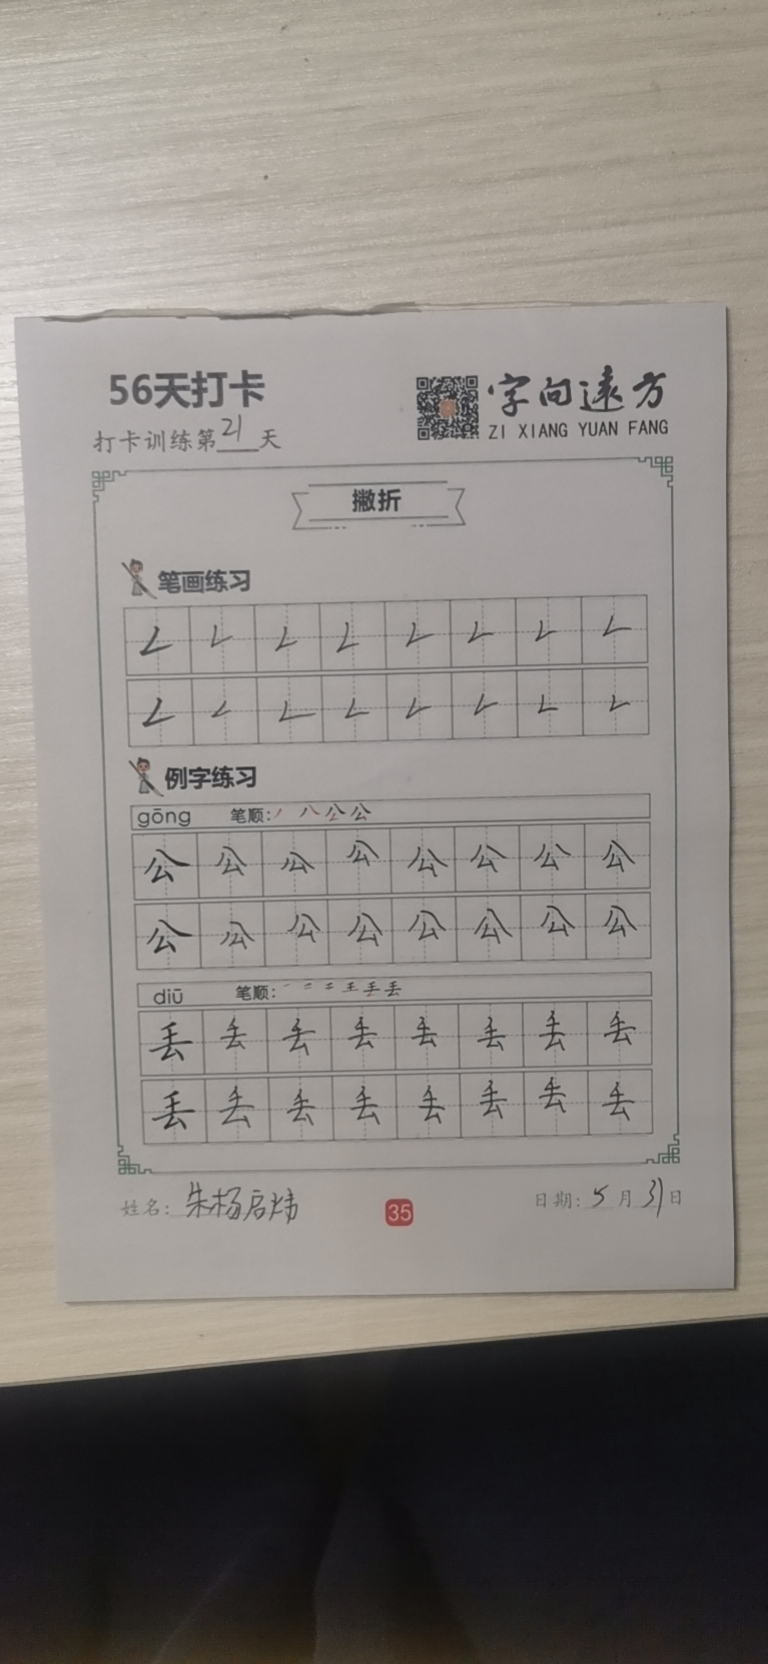 56天打卡
字向遠方
打卡训练第21天
ZI XIANG YUAN FANG
撇折
笔画练习
例字练习
gōng 笔顺:
公 公 公 公 公 公 公 公
公 公 公 公 公 公 公 公
diū 笔顺:
丢 丢 丢 丢 丢 丢 丢 丢
丢 丢 丢 丢 丢 丢 丢 丢
姓名: 朱杨启炜
35
日期: 5月31日